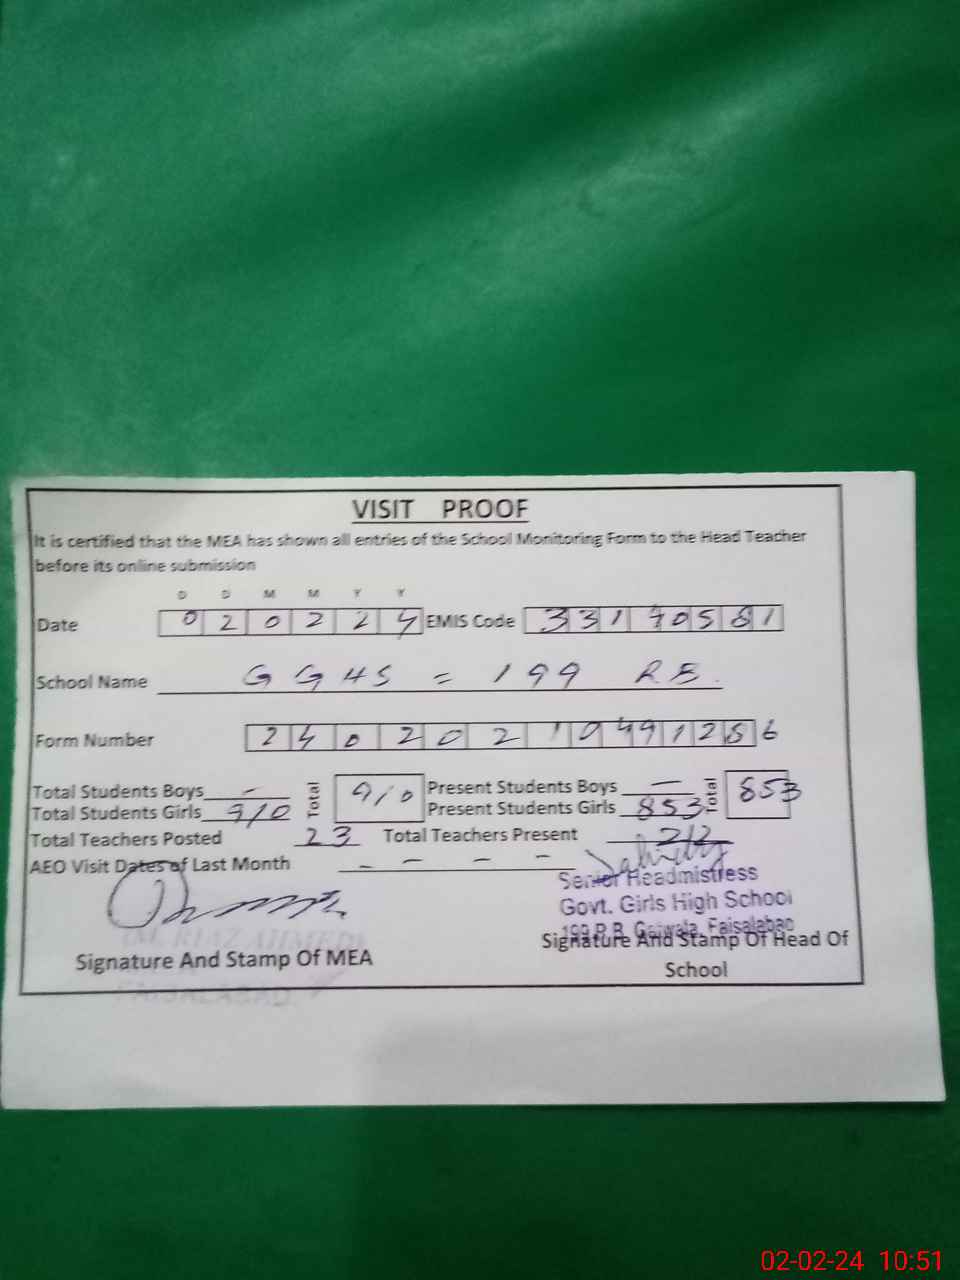 VISIT PROOF
It is certified that the MEA has shown all entries of the School Monitoring Form to the Head Teacher
before its online submission
D D M M Y Y
Date 0 2 0 2 2 4 EMIS Code 3 3 1 7 0 5 8 1
School Name G GHS = 199 R.B.
Form Number 2 4 0 2 0 2 1 0 4 9 1 2 8 6
Total Students Boys - Total 910 Present Students Boys - Total 853
Total Students Girls 910 Present Students Girls 853
Total Teachers Posted 23 Total Teachers Present
AEO Visit Dates of Last Month - - - -
Senior Headmistress
Govt. Girls High School
199 R.B. Faisalabad
(M. RIAZ AHMED)
Signature And Stamp Of MEA
Signature And Stamp Of Head Of
School
FAISALABAD
02-02-24 10:51